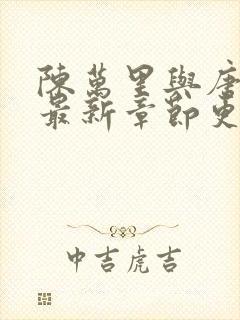 陳萬里與唐
最新章節更
中吉虎吉